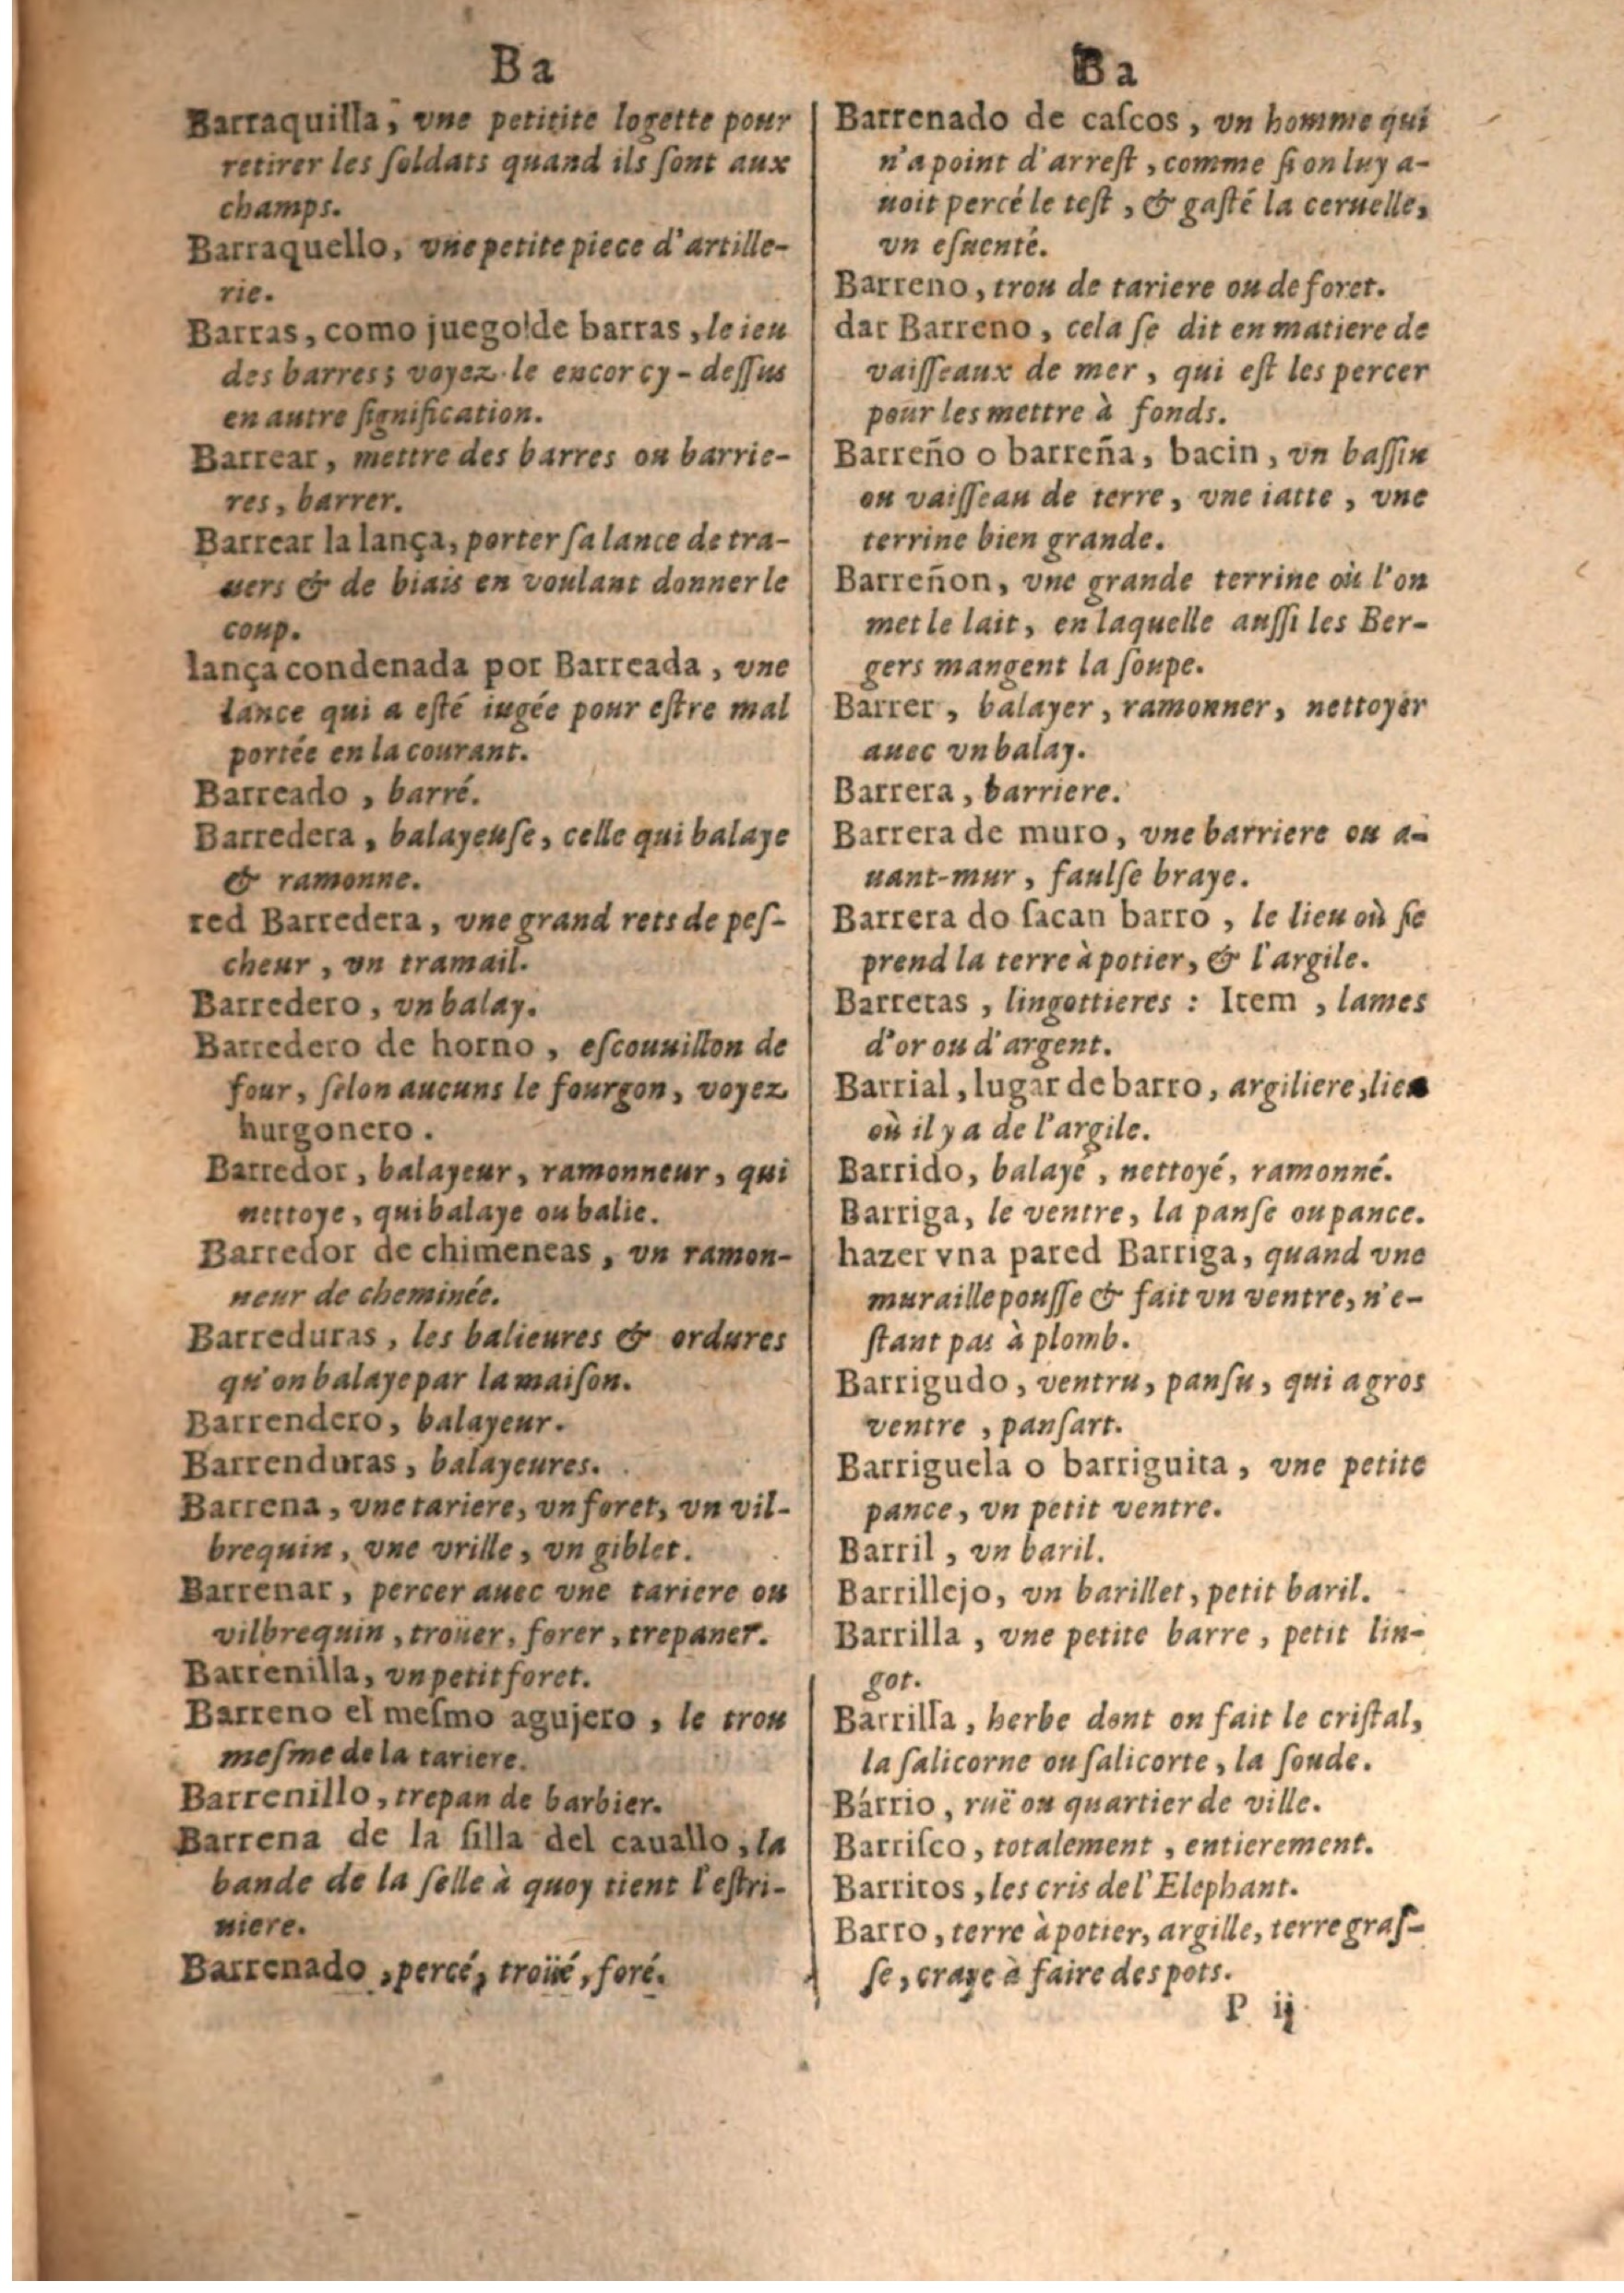 Ba
Barraquilla, vne petitite logette pour
retirer les ſoldats quand ils ſont aux
champs.
Barraquello, vne petite piece d'artille-
rie.
Barras, como juego de barras, le ieu
des barres; voyez-le encor cy-deſſus
en autre ſignification.
Barrear, mettre des barres ou barrie-
res, barrer.
Barrear la lança, porter ſa lance de tra-
uers & de biais en voulant donner le
coup.
lança condenada por Barreada, vne
lance qui a eſté iugée pour eſtre mal
portée en la courant.
Barreado, barré.
Barredera, balayeuſe, celle qui balaye
& ramonne.
red Barredera, vne grand rets de peſ-
cheur, vn tramail.
Barredero, vn balay.
Barredero de horno, eſcouuillon de
four, ſelon aucuns le fourgon, voyez
hurgonero.
Barredor, balayeur, ramonneur, qui
nettoye, qui balaye ou balie.
Barredor de chimeneas, vn ramon-
neur de cheminée.
Barreduras, les balieures & ordures
qu'on balaye par la maiſon.
Barrendero, balayeur.
Barrenduras, balayeures.
Barrena, vne tariere, vn foret, vn vil-
brequin, vne vrille, vn giblet.
Barrenar, percer auec vne tariere ou
vilbrequin, troüer, forer, trepaner.
Barrenilla, vn petit foret.
Barreno el meſmo agujero, le trou
meſme de la tariere.
Barrenillo, trepan de barbier.
Barrena de la ſilla del cauallo, la
bande de la ſelle à quoy tient l'eſtri-
uiere.
Barrenado, percé, troüé, foré.
Ba
Barrenado de caſcos, vn homme qui
n'a point d'arreſt, comme ſi on luy a-
uoit percé le teſt, & gaſté la ceruelle,
vn eſuenté.
Barreno, trou de tariere ou de foret.
dar Barreno, cela ſe dit en matiere de
vaiſſeaux de mer, qui eſt les percer
pour les mettre à fonds.
Barreño o barreña, bacin, vn baſſin
ou vaiſſeau de terre, vne iatte, vne
terrine bien grande.
Barreñon, vne grande terrine où l'on
met le lait, en laquelle auſſi les Ber-
gers mangent la ſoupe.
Barrer, balayer, ramonner, nettoyer
auec vn balay.
Barrera, barriere.
Barrera de muro, vne barriere ou a-
uant-mur, faulſe braye.
Barrera do ſacan barro, le lieu où ſe
prend la terre à potier, & l'argile.
Barretas, lingottieres: Item, lames
d'or ou d'argent.
Barrial, lugar de barro, argiliere, lieu
où il y a de l'argile.
Barrido, balayé, nettoyé, ramonné.
Barriga, le ventre, la panſe ou pance.
hazer vna pared Barriga, quand vne
muraille pouſſe & fait vn ventre, n'e-
ſtant pas à plomb.
Barrigudo, ventru, panſu, qui a gros
ventre, panſart.
Barriguela o barriguita, vne petite
pance, vn petit ventre.
Barril, vn baril.
Barrillejo, vn barillet, petit baril.
Barrilla, vne petite barre, petit lin-
got.
Barrilla, herbe dont on fait le criſtal,
la ſalicorne ou ſalicorte, la ſoude.
Bárrio, ruë ou quartier de ville.
Barriſco, totalement, entierement.
Barritos, les cris de l'Elephant.
Barro, terre à potier, argille, terre graſ-
ſe, craye à faire des pots.
P ij